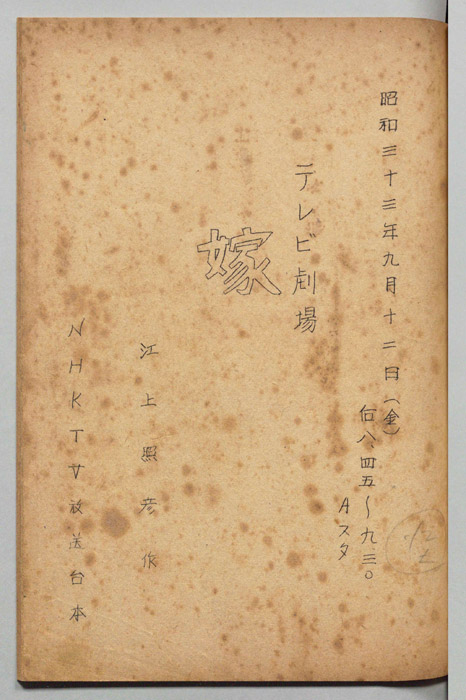 昭和三十三年九月十二日(金)
后八、四五〜九、三〇
Aスタ
テレビ劇場
嫁
江上照彦作
NHKTV放送台本